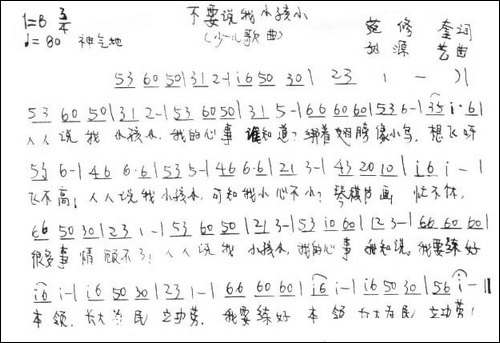 1=B 3/4 不要说我小孩小
♩=80 神气地 (少儿歌曲) 苑修奎词
胡源艺曲
53 60 50|31 2-|i6 50 30|23 1 - )|
53 60 50|31 2-|53 60 50|31 5-|66 60 60|53 6-|35 i·6|
人人说我 小孩小,我的心事 谁知道?绑着翅膀像小鸟,想飞呀
53 6-|46 6·6|53 5-|46 6·6|21 3-|43 20 10|i6 i-|
飞不高;人人说我小孩小,可知我小心不小?琴棋书画 忙不休,
66 50 30|23 1-|53 60 50|21 3-|53 10 60|12 3-|66 60 60|
很多事情 顾不了;人人说我 小孩小,我的心事 我知道。我要练好
i6 i-|i6 50 30|23 1-|66 60 60|i6 i-|i6 50 30|56 i-||
本领,长大为民 立功劳,我要练好 本领 长大为民 立功劳!